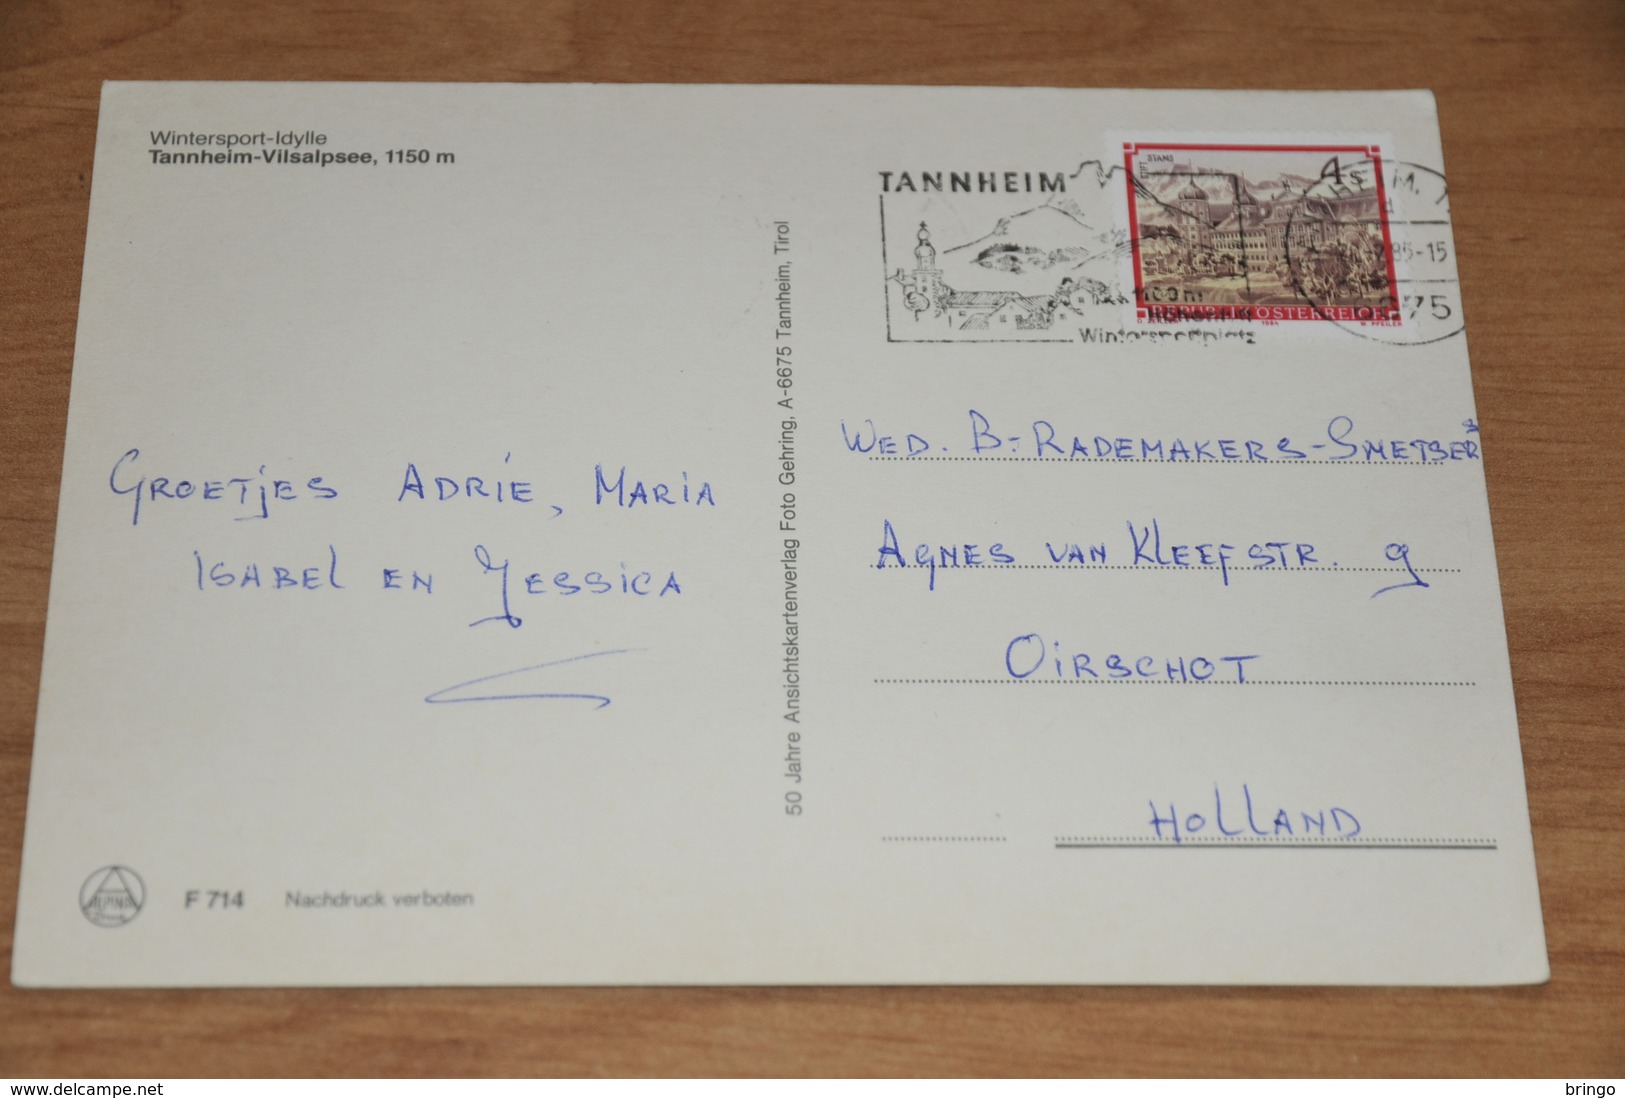 Wintersport-Idylle
Tannheim-Vilsalpsee, 1150 m
GROETJES ADRIE, MARIA
ISABEL EN JESSICA
F 714 Nachdruck verboten
50 Jahre Ansichtskartenverlag Foto Gehring, A-6675 Tannheim, Tirol
TANNHEIM
1100 m
Wintersportplatz
STIFT STAMS
4 S
REPUBLIK ÖSTERREICH
1984 W. PFEILER
85-15
6675
WED. B.-RADEMAKERS-SMETSERS
AGNES VAN KLEEFSTR. 9
OIRSCHOT
HOLLAND
www.delcampe.net
bringo